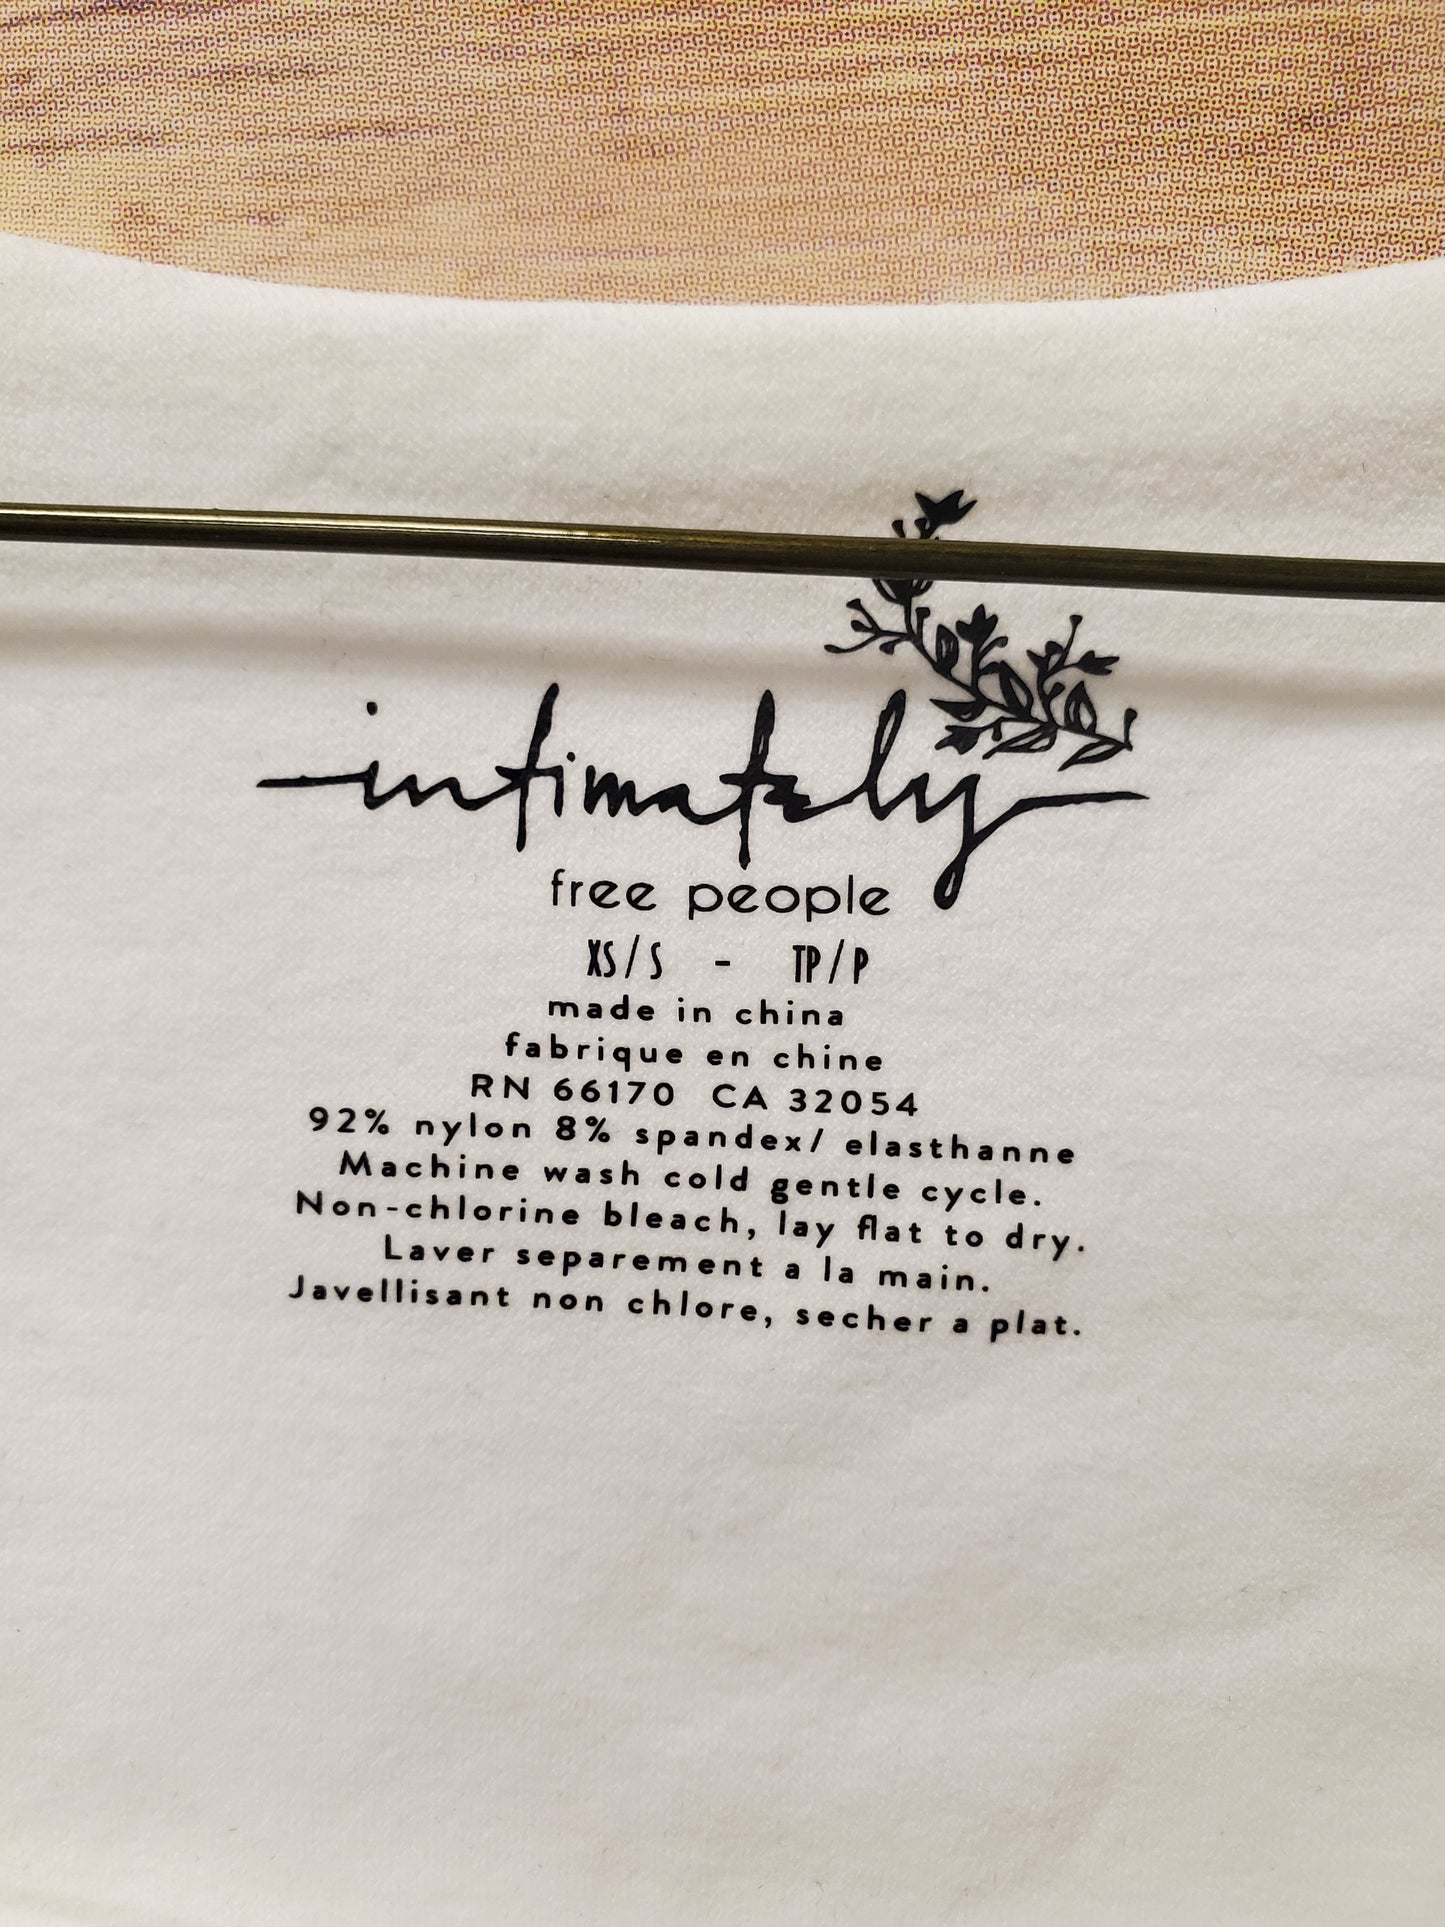 intimately
free people
XS/S - TP/P
made in china
fabrique en chine
RN 66170 CA 32054
92% nylon 8% spandex/ elasthanne
Machine wash cold gentle cycle.
Non-chlorine bleach, lay flat to dry.
Laver separement a la main.
Javellisant non chlore, secher a plat.